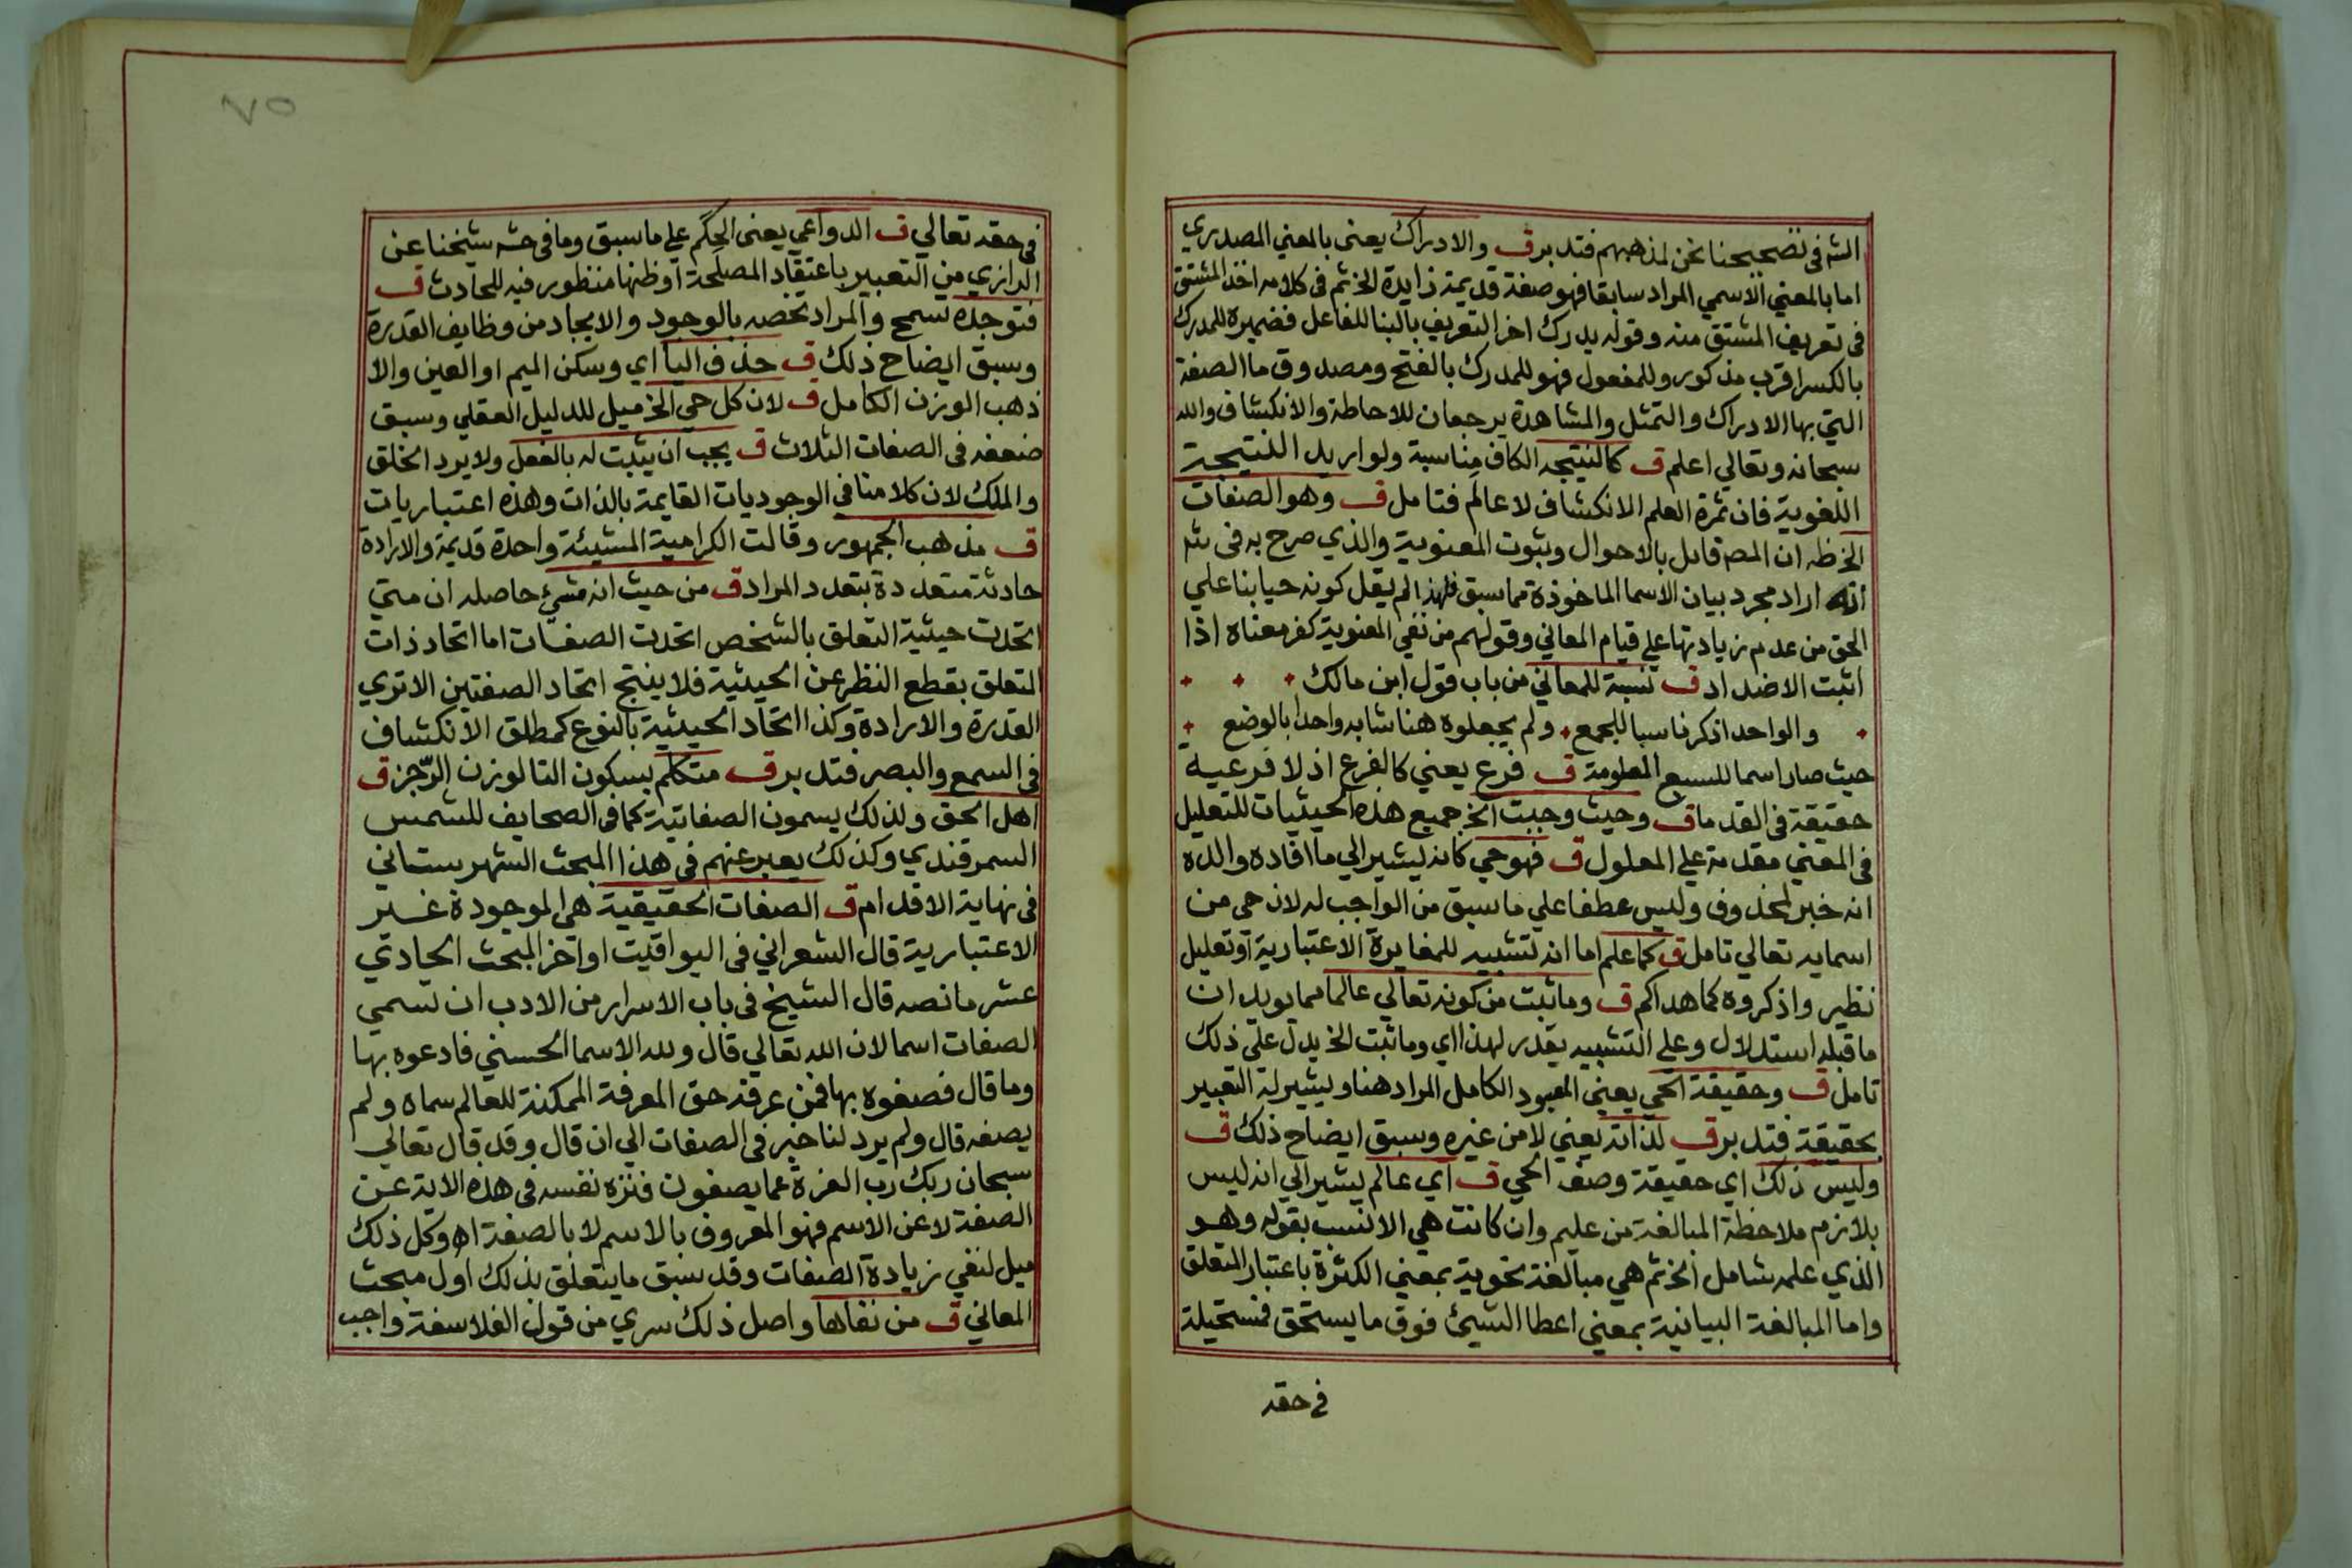 الشه فى تصحيحنا نحن لمذهبهم فتدبر ق والادراك يعنى بالمعني المصدري
اما بالمعني الاسمي المراد سابقا فهو صفة قديمة زايدة الخ ثم فى كلامه اخذ المشتق
فى تعريف المشتق منه وقوله يدرك اخر التعريف بالبنا للفاعل فضميره للمدرك
بالكسر اقرب مذكور وللمفعول فهو للمدرك بالفتح ومصدوق ما الصفة
التي بها الادراك والتمثل والمشاهدة يرجعان للاحاطة والانكشاف والله
سبحانه وتعالي اعلم ق كالنتيجه الكاف مناسبة ولو اريد النتيجة
اللغوية فان ثمرة العلم الانكشاف لا عالم فتامل ق وهو الصفات
الخ ظه ان المصه قايل بالاحوال وبثوت المعنوية والذي صرح به فى شه
انه اراد مجرد بيان الاسما الماخوذة مما سبق فلهذا لم يقل كونه حيا بنا علي
الحق من عدم زيادتها علي قيام المعاني وقولهم من نفي المعنوية كفر معناه اذا
اثبت الاضداد ق نسبة للمعاني من باب قول ابن مالك
والواحد اذكر ناسبا للجمع ولم يجعلوه هنا شابه واحدا بالوضع
حيث صار اسما للسبع المعلومة ق فرع يعني كالفرع اذ لا فرعيه
حقيقة فى القدما ق وحيث وجبت الخ جميع هذه الحيثيات للتعليل
فى المعني مقدمة علي المعلول ق فهو حي كانه يشير الي ما افاده والده
انه خبر لمحذوف وليس عطفا علي ما سبق من الواجب له لان حى من
اسمايه تعالي تامل ق كما علم اما انه تشبيه للمغايرة الاعتبارية او تعليل
نظير واذكروه كما هداكم ق وما ثبت من كونه تعالي عالما مما يويد ان
ما قبله استدلال وعلي التشبيه يقدر لهذا اي وما ثبت الخ يدل علي ذلك
تامل ق وحقيقة الحي يعني المعبود الكامل المراد هنا ويشير له التعبير
بحقيقة فتدبر ق لذاته يعني لا من غيره وسبق ايضاح ذلك ق
وليس ذلك اي حقيقة وصف الحي ق اي عالم يشير الي انه ليس
بلازم ملاحظة المبالغة من عليم وان كانت هي الانسب بقوله وهو
الذي علمه شامل الخ ثم هي مبالغة نحوية بمعني الكثرة باعتبار المتعلق
واما المبالغة البيانية بمعني اعطا الشيئ فوق ما يستحق فمستحيلة
فى حقه
٧٥
فى حقه تعالي ق الدواعي يعنى الحِكَم علي ما سبق وما فى حشه شيخنا عن
الرازي من التعبير باعتقاد المصلحة او ظنها منظور فيه للحادث ق
فتوجده تسمح والمراد تخصه بالوجود والايجاد من وظايف القدرة
وسبق ايضاح ذلك ق حذف اليا اي وسكن الميم او العين والا
ذهب الوزن الكامل ق لان كل حي الخ ميل للدليل العقلي وسبق
ضعفه فى الصفات الثلاث ق يجب ان يثبت له بالفعل ولا يرد الخلق
والملك لان كلامنا فى الوجوديات القايمة بالذات وهذه اعتباريات
ق مذهب الجمهور وقالت الكرامية المشيئة واحدة قديمة والارادة
حادثة متعددة بتعدد المراد ق من حيث انه مشيئ حاصله ان متي
اتحدت حيثية التعلق بالشخص اتحدت الصفات اما اتحاد ذات
المتعلق بقطع النظر عن الحيثية فلا ينتج اتحاد الصفتين الا تري
القدرة والارادة وكذا اتحاد الحيثية بالنوع كمطلق الانكشاف
فى السمع والبصر فتدبر ق متكلم بسكون التا لوزن الرّجز ق
اهل الحق ولذلك يسمون الصفاتية كما فى الصحايف للشمس
السمرقندي وكذلك يعبر عنهم فى هذا المبحث الشهرستاني
فى نهاية الاقدام ق الصفات الحقيقية هى الموجودة غير
الاعتبارية قال الشعراني فى اليواقيت اواخر المبحث الحادي
عشر ما نصه قال الشيخ فى باب الاسرار من الادب ان تسمي
الصفات اسما لان الله تعالي قال ولله الاسما الحسني فادعوه بها
وما قال فصفوه بها فمن عرفه حق المعرفة الممكنة للعالم سماه ولم
يصفه قال ولم يرد لنا خبر فى الصفات الي ان قال وقد قال تعالي
سبحان ربك رب العزة عما يصفون فنزه نفسه فى هذه الاية عن
الصفة لا عن الاسم فهو المعروف بالاسم لا بالصفة اه وكل ذلك
ميل لنفي زيادة الصفات وقد سبق ما يتعلق بذلك اول مبحث
المعاني ق من نفاها واصل ذلك سري من قول الفلاسفة واجب